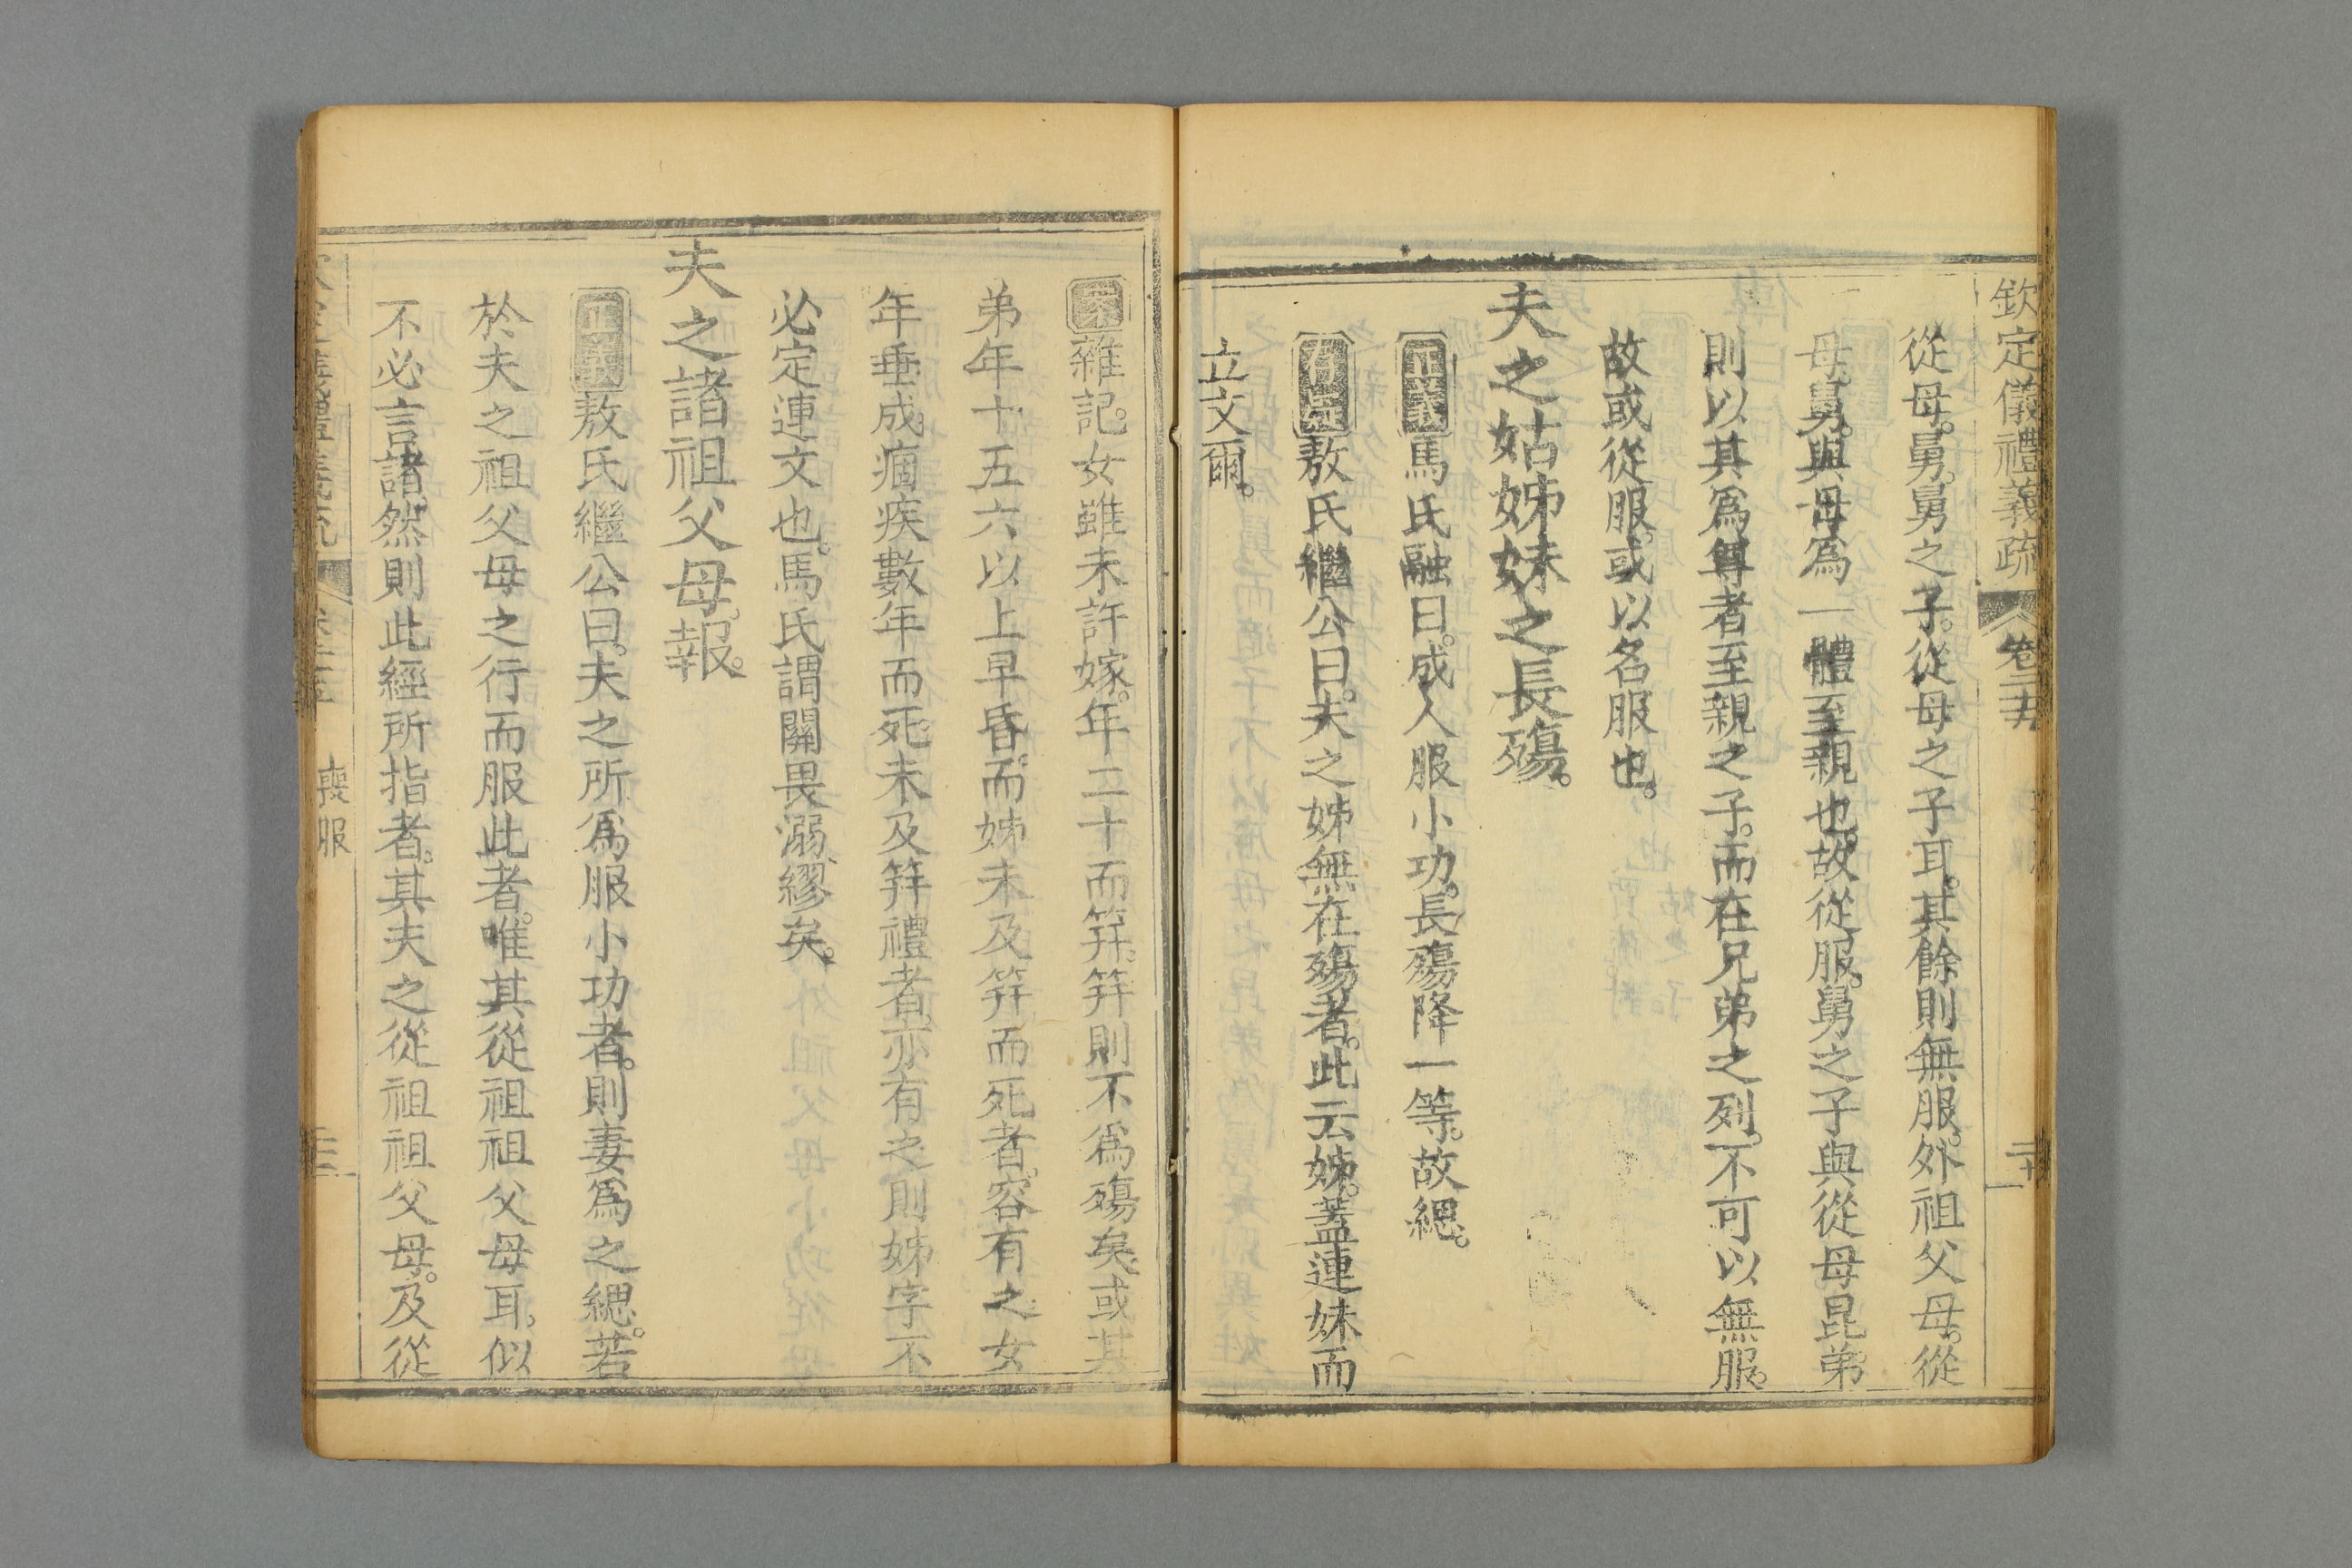 欽定儀禮義疏 卷二十五
從母。舅。舅之子。從母之子耳。其餘則無服。外祖父母。從
母。舅。與母爲一體至親也。故從服。舅之子與從母昆弟
則以其爲尊者至親之子。而在兄弟之列。不可以無服。
故或從服。或以名服也。
夫之姑姊妹之長殤。
正義馬氏融曰。成人服小功。長殤降一等。故緦。
存疑敖氏繼公曰。夫之姊無在殤者。此云姊。蓋連妹而
立文爾。
案雜記。女雖未許嫁。年二十而筓。筓則不爲殤矣。或其
弟年十五六以上早昏。而姊未及筓而死者。容有之。女
年垂成。痼疾數年而死。未及筓禮者。亦有之。則姊字不
必定連文也。馬氏謂關畏溺。繆矣。
夫之諸祖父母。報。
正義敖氏繼公曰。夫之所爲服小功者。則妻爲之緦。若
於夫之祖父母之行而服此者。唯其從祖祖父母耳。似
不必言諸。然則此經所指者。其夫之從祖祖父母。及從
喪服